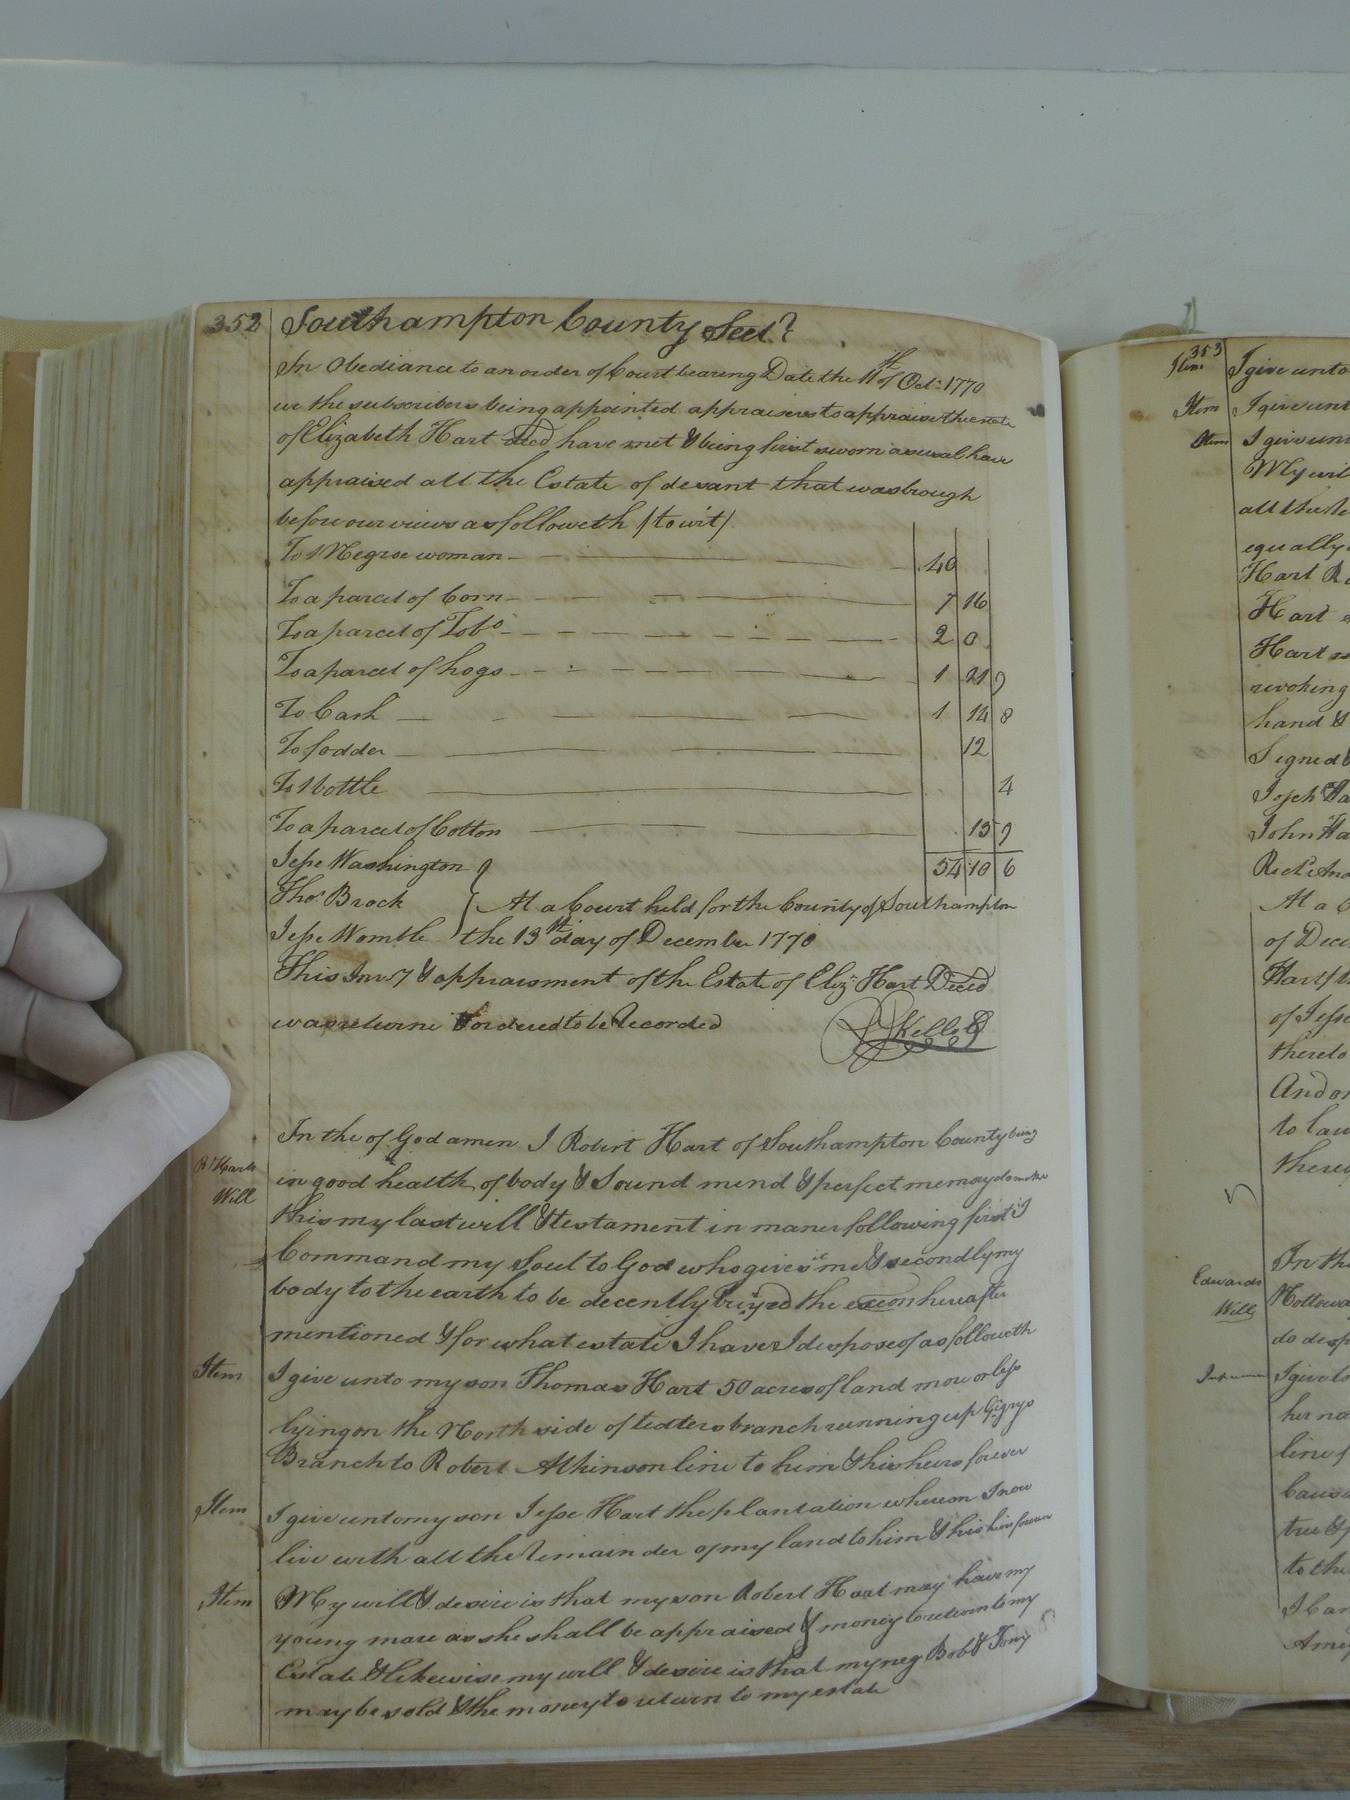 352 Southampton County Sect
In Obediance to an order of Court bearing Date the 11th of Oct: 1770
we the subscribers being appointed appraisers to appraise the estate
of Elizabeth Hart Decd have met & being first sworn as usual have
appraised all the Estate of desant that was brough
before our views as followeth (to wit)
To 1 Negroe woman 40
To a parcel of Corn 7 16
To a parcel of Tobo 2 0
To a parcel of hogs 1 9
To Cash 1 14 8
To fodder 12
To 1 bottle 4
To a parcel of Cotton 15 9
Jesse Washington 54 10 6
Thos Brock At a Court held for the County of Southampton
Jesse Womble the 13th day of December 1770
This Invy & appraisment of the Estate of Eliz: Hart Decd
was returne & ordered to be Recorded
In the of God amen I Robert Hart of Southampton County being
Rt Harts in good health of body & Sound mend & perfect memay do make
Will
this my last will & testament in maner following first I
Command my Soul to God who gives it me & secondly my
body to the earth to be decently the hereafter
mentioned & for what estate I have I dispose of as followeth
Item I give unto my son Thomas Hart 50 acres of land more or less
lying on the North side of branch running up
Branch to Robert Atkinson line to him & his heirs forever
Item I give unto my son Jesse Hart the plantation whereon I now
live with all the Remainder of my land to him & his heirs forever
Item My will & desire is that my son Robert Hart may have my
young mare as she shall be appraised & money to return to my
Estate & likewise my will & desire is that my neg Bob & Tony
may be sold & the money to return to my estate
353
Item I give unto
Item I give unt
Item I give un
My wil
all the
equally
Hart
Hart
Hart
revoking
hand &
Signed
John Ha
At a C
of Dece
Hart
of Jesse
thereto
And
to
there
In the
Edwards
Will
do
I give
her na
line
to the